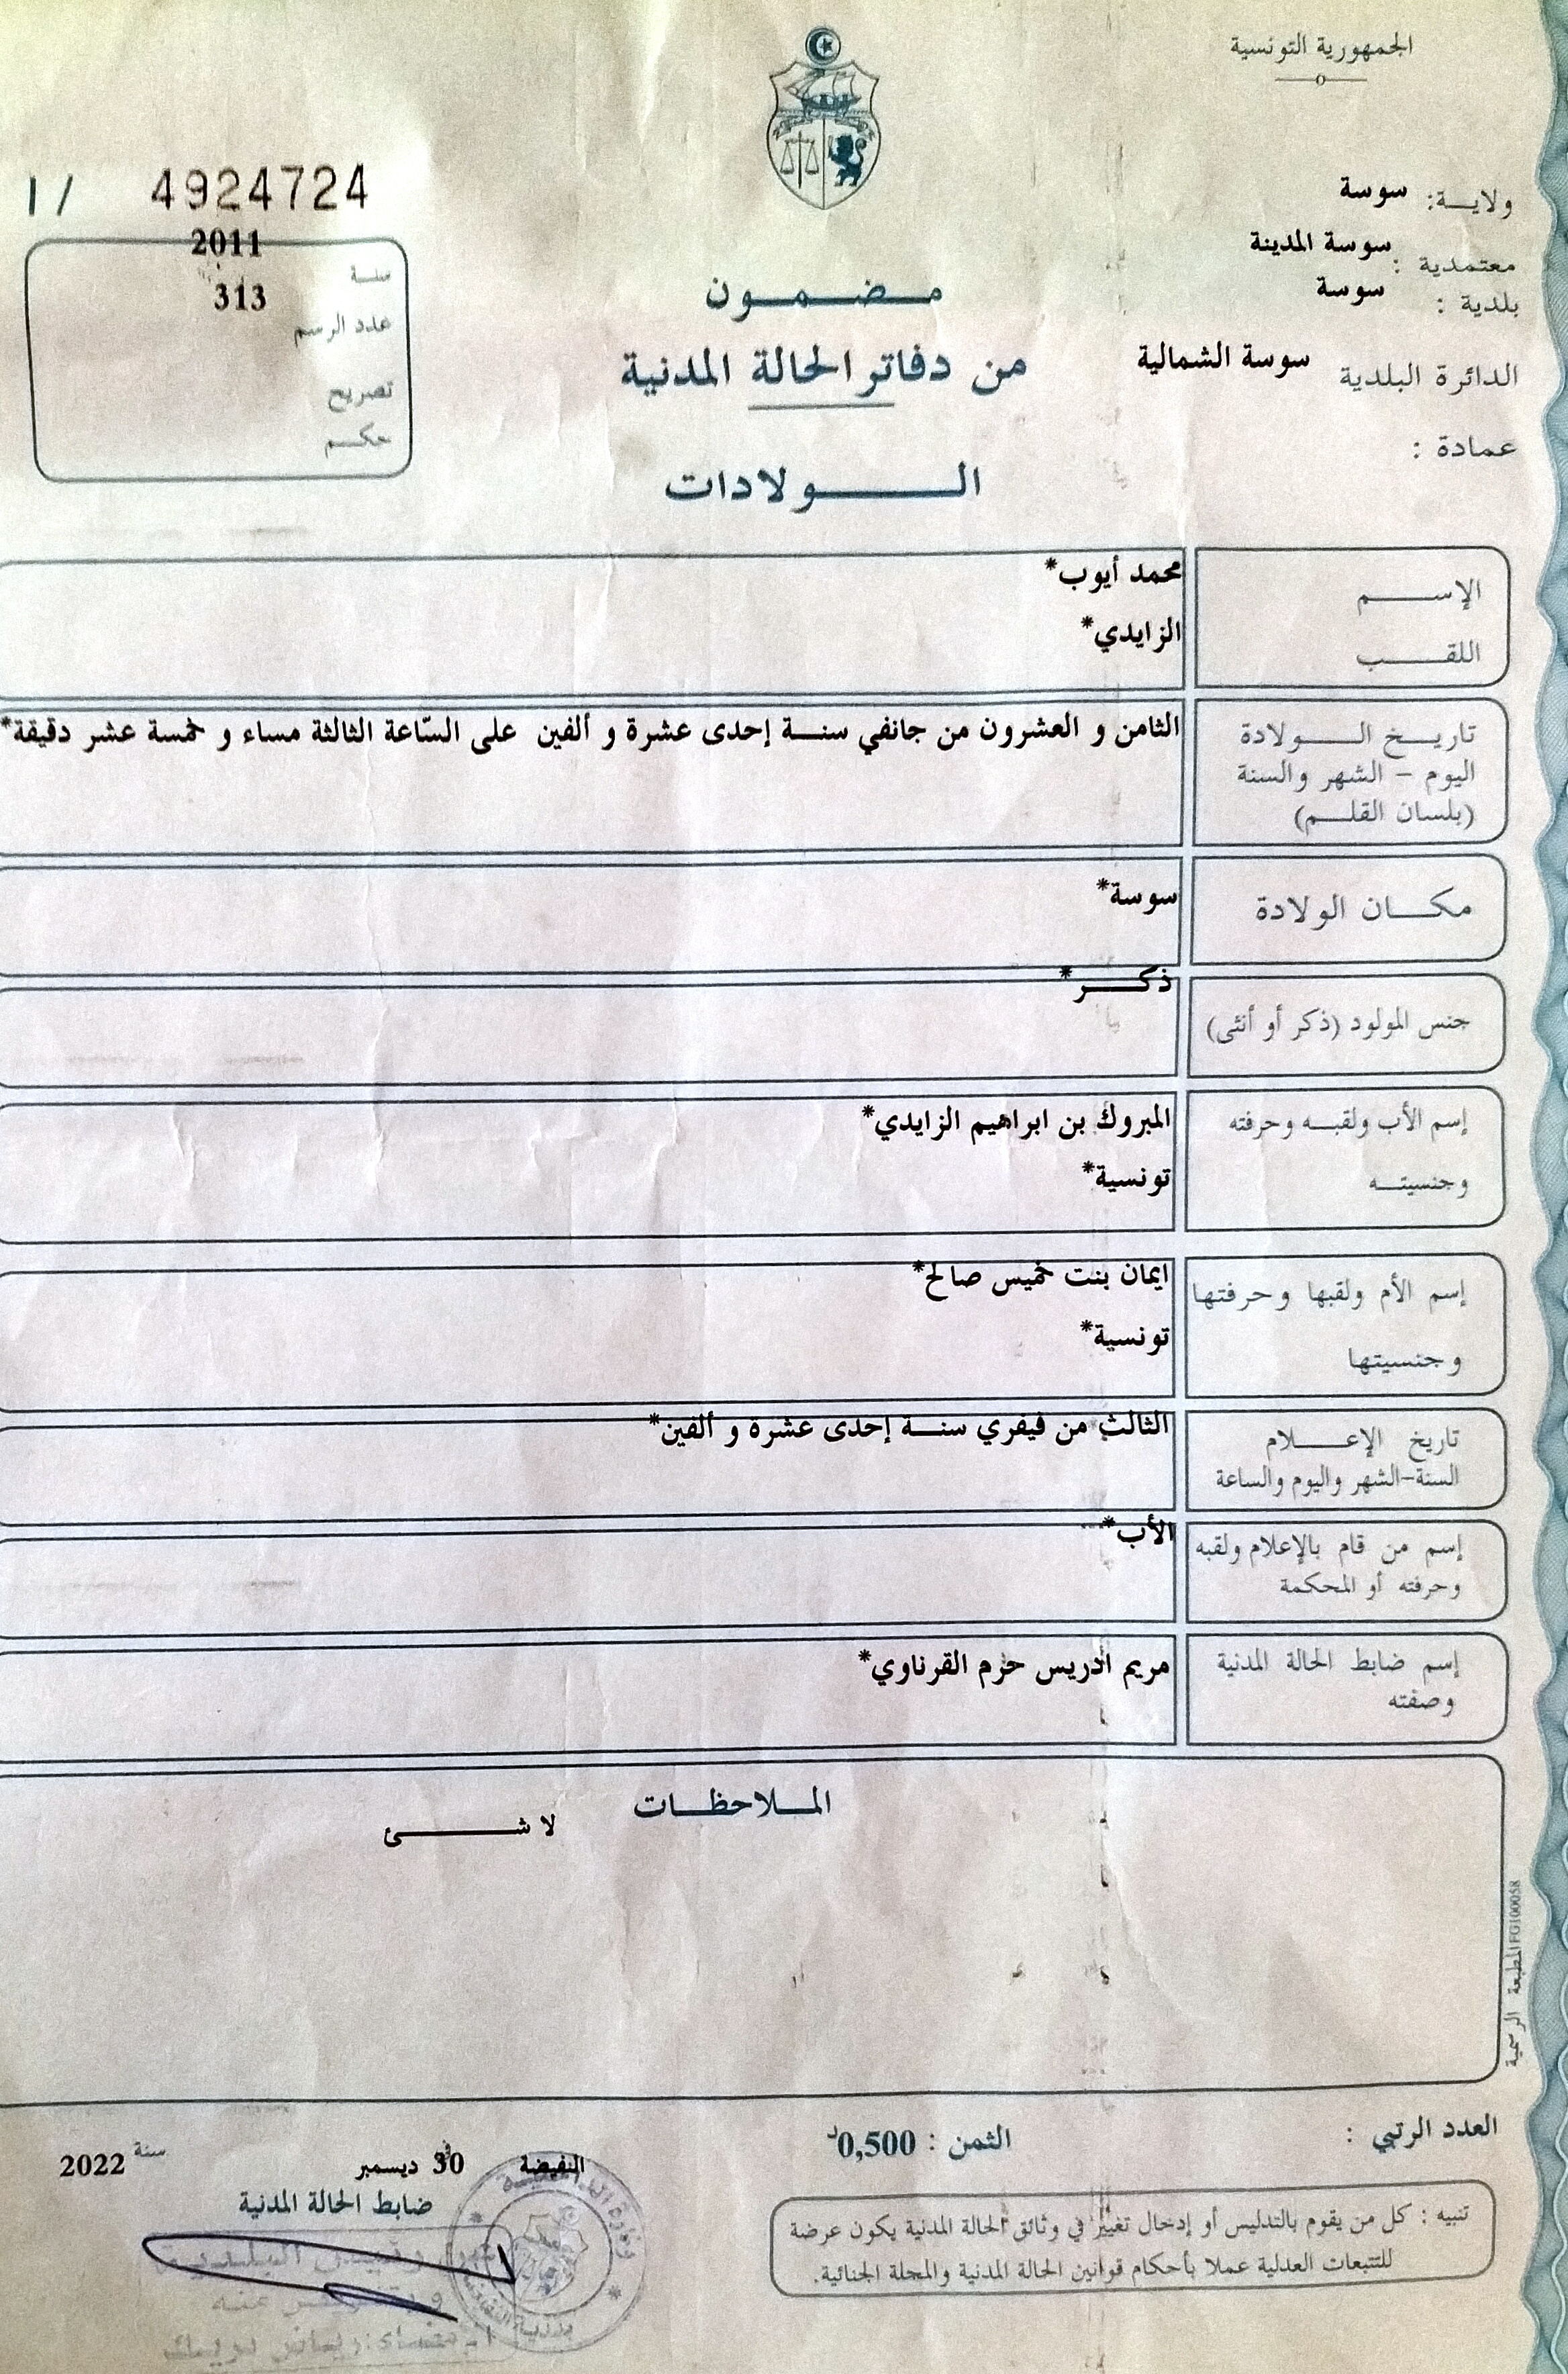 الجمهورية التونسية
ولايـــة: سوسة
معتمدية : سوسة المدينة
بلدية : سوسة
الدائرة البلدية سوسة الشمالية
عمادة :
4924724 / I
2011
سنـة
313
عدد الرسم
تصريح
حكـــم
مـــضـــمـــون
من دفاتر الحالة المدنية
الـــــولادات
الإســـــم محمد أيوب*
اللقـــــب الزايدي*
تاريـــخ الـــــولادة الثامن و العشرون من جانفي سنـــة إحدى عشرة و ألفين على السّاعة الثالثة مساء و خمسة عشر دقيقة*
اليوم – الشهر والسنة
(بلسان القلـــم)
مكـــان الولادة سوسة*
جنس المولود (ذكر أو أنثى) ذكـــــر*
إسم الأب ولقبـــه وحرفته المبروك بن ابراهيم الزايدي*
وجنسيتـــه تونسية*
إسم الأم ولقبها وحرفتها ايمان بنت خميس صالح*
وجنسيتها تونسية*
تاريخ الإعـــــلام الثالث من فيفري سنـــة إحدى عشرة و ألفين*
السنة-الشهر واليوم والساعة
إسم من قام بالإعلام ولقبه الأب*
وحرفته أو المحكمة
إسم ضابط الحالة المدنية مريم ادريس حرم القرناوي*
وصفته
المـــلاحظـــات
لا شـــــئ
المطبعة الرسمية FG100058
العدد الرتبي :
الثمن : 0,500د
النفيضة في 30 ديسمبر سنة 2022
ضابط الحالة المدنية
تنبيه : كل من يقوم بالتدليس أو إدخال تغيير في وثائق الحالة المدنية يكون عرضة
للتتبعات العدلية عملا بأحكام قوانين الحالة المدنية والمجلة الجنائية.